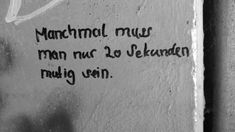 Manchmal muss
man nur 20 Sekunden
mutig sein.